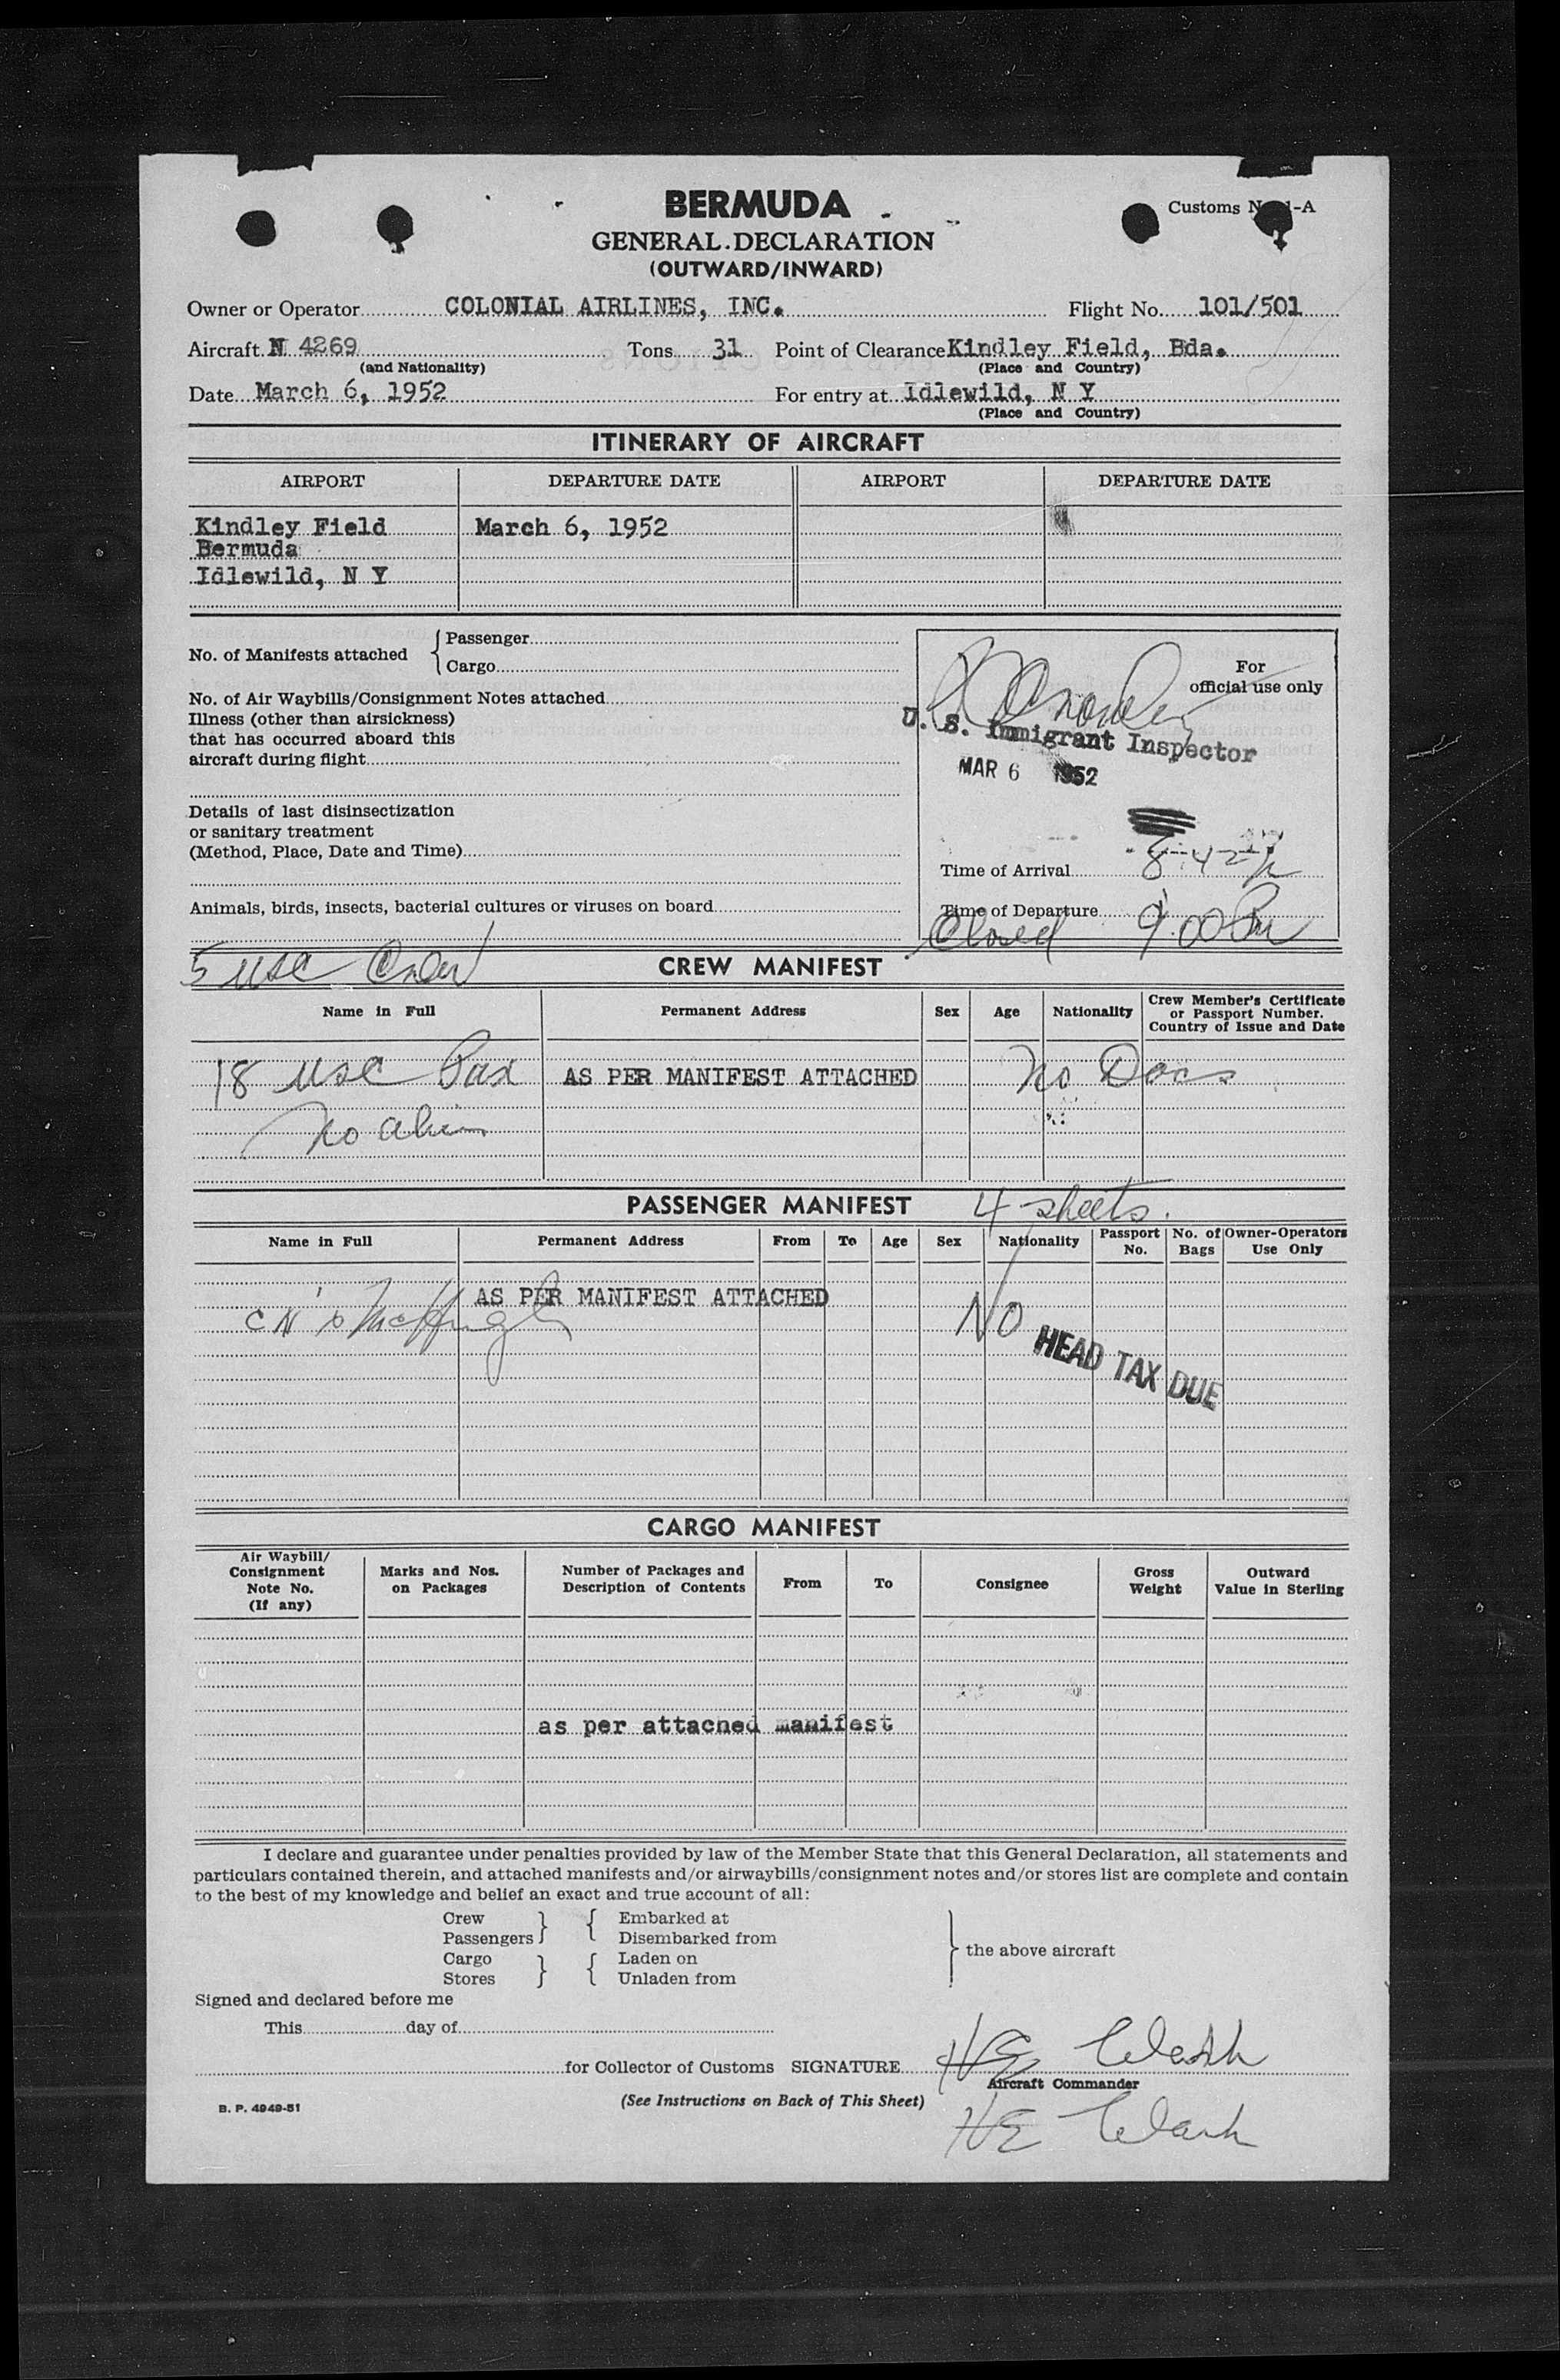 BERMUDA
Customs N 1-A
GENERAL DECLARATION
(OUTWARD/INWARD)
Owner or Operator COLONIAL AIRLINES, INC. Flight No. 101/501
Aircraft N 4269 Tons 31 Point of Clearance Kindley Field, Bda.
(and Nationality) (Place and Country)
Date March 6, 1952 For entry at Idlewild, N Y
(Place and Country)
ITINERARY OF AIRCRAFT
AIRPORT DEPARTURE DATE AIRPORT DEPARTURE DATE
Kindley Field March 6, 1952
Bermuda
Idlewild, N Y
No. of Manifests attached { Passenger
Cargo
No. of Air Waybills/Consignment Notes attached
Illness (other than airsickness)
that has occurred aboard this
aircraft during flight
Details of last disinsectization
or sanitary treatment
(Method, Place, Date and Time)
Animals, birds, insects, bacterial cultures or viruses on board
For
official use only
U. S. Immigrant Inspector
MAR 6 1952
Time of Arrival 8-42 P
Time of Departure
Closed 9:00 Pm
5 USC Crew
CREW MANIFEST
Name in Full Permanent Address Sex Age Nationality Crew Member's Certificate
or Passport Number.
Country of Issue and Date
18 USC Pax AS PER MANIFEST ATTACHED No Docs
No alien
PASSENGER MANIFEST 4 sheets.
Name in Full Permanent Address From To Age Sex Nationality Passport No. No. of Bags Owner-Operators Use Only
AS PER MANIFEST ATTACHED
NO
HEAD TAX DUE
CARGO MANIFEST
Air Waybill/ Consignment Note No. (If any) Marks and Nos. on Packages Number of Packages and Description of Contents From To Consignee Gross Weight Outward Value in Sterling
as per attached manifest
I declare and guarantee under penalties provided by law of the Member State that this General Declaration, all statements and
particulars contained therein, and attached manifests and/or airwaybills/consignment notes and/or stores list are complete and contain
to the best of my knowledge and belief an exact and true account of all:
Crew } { Embarked at
Passengers Disembarked from
Cargo } { Laden on
Stores Unladen from
} the above aircraft
Signed and declared before me
This day of
for Collector of Customs SIGNATURE HE Clark
Aircraft Commander
HE Clark
B. P. 4949-51
(See Instructions on Back of This Sheet)